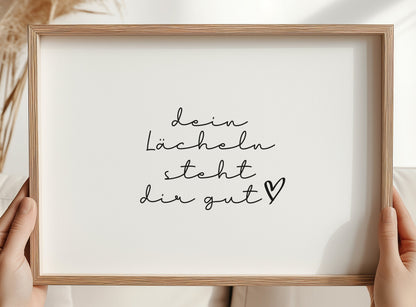 dein
Lächeln
steht
dir gut♡